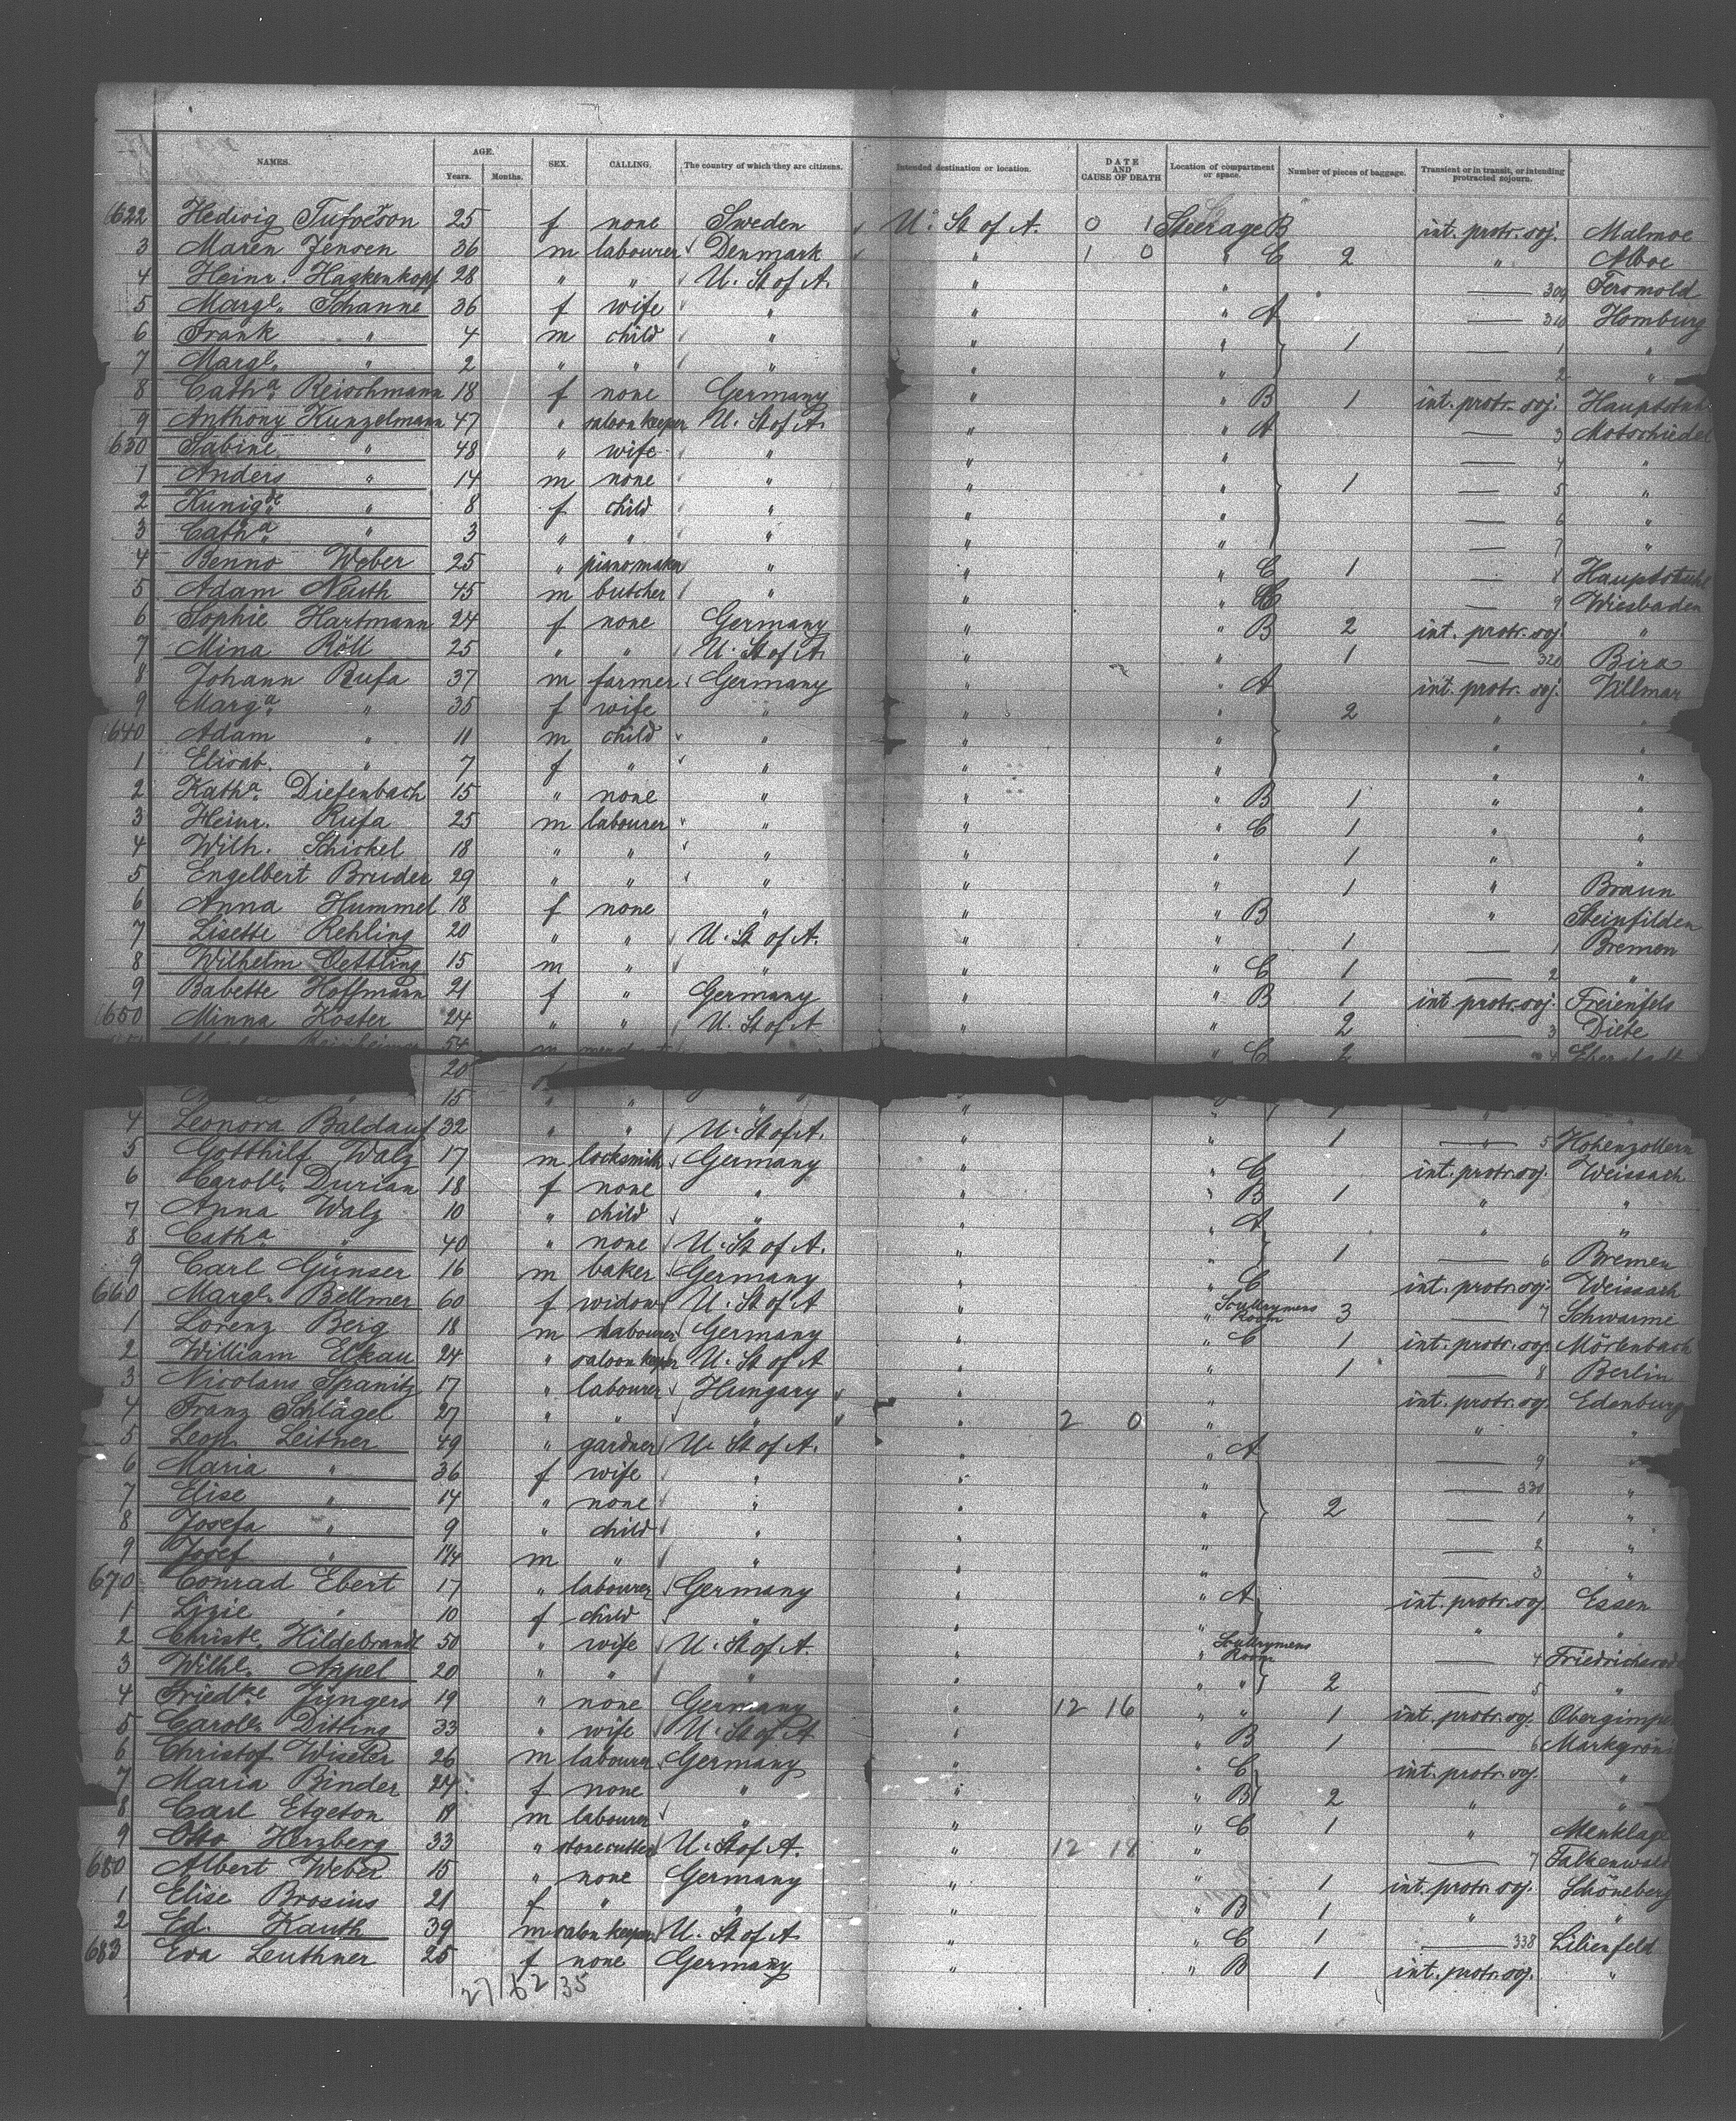 NAMES. AGE. Years. Months. SEX. CALLING. The country of which they are citizens. Intended destination or location. DATE AND CAUSE OF DEATH Location of compartment or space. Number of pieces of baggage. Transient or in transit, or intending protracted sojourn.
1622 Hedwig Tufveson 25 f none Sweden U. St of A. 0 1 Steerage B int. protr. soj. Malmoe
3 Maren Jensen 36 m labourer Denmark " 1 0 " C 2 " Alboe
4 Heinr. Hagkenkopf 28 " " U. St of A. " " — 309
5 Margt. Schanne 36 f wife " " " A — 310 Homburg
6 Frank " 4 m child " " " 1 — 1 "
7 Margt. " 2 " " " " " — 2 "
8 Catha Reischmann 18 f none Germany " " B 1 int. protr. soj.
9 Anthony Kunzelmann 47 " saloonkeeper U. St of A. " " A — 3
630 Sabine " 48 " wife " " " — 4 "
1 Anders " 14 m none " " " 1 — 5 "
2 Kunigde " 8 f child " " " — 6 "
3 Catha " 3 " " " " " — 7 "
4 Benno Weber 25 " pianomaker " " " C 1 — 8 Hauptstuhl
5 Adam Neuth 45 m butcher " " " C — 9 Wiesbaden
6 Sophie Hartmann 24 f none Germany " " B 2 int. protr. soj. "
7 Mina Röll 25 " " U. St of A. " " 1 — 320 Bira
8 Johann Rufa 37 m farmer Germany " " A int. protr. soj. Villmar
9 Marga " 35 f wife " " " 2 " "
1640 Adam " 11 m child " " " " "
1 Elisab. " 7 f " " " " " "
2 Katha Diefenbach 15 " none " " " B 1 " "
3 Heinr. Rufa 25 m labourer " " " C 1 " "
4 Wilh. Schickel 18 " " " " " 1 " "
5 Engelbert Bruder 29 " " " " " 1 " Braun
6 Anna Hummel 18 f none " " " B " Steinfilden
7 Lisette Rehling 20 " " U. St of A. " " 1 — 1 Bremen
8 Wilhelm Oettling 15 m " " " " C 1 — 2 "
9 Babette Hoffmann 21 f " Germany " " B 1 int. protr. soj. Freienfels
1650 Minna Koster 24 " " U. St of A " " 2 — 3 Diebe
54 m " C 2 4
20
15 " " " "
4 Leonora Baldauf 32 " " U. St of A. " " 1 — " 5 Hohenzollern
5 Gotthilf Walz 17 m locksmith Germany " " C int. protr. soj. Weissach
6 Caroll. Durian 18 f none " " " B 1 " "
7 Anna Walz 10 " child " " " A " "
8 Catha " 40 " none U. St of A. " " 1 — 6 Bremen
9 Carl Günser 16 m baker Germany " " C int. protr. soj. Weissach
660 Margt. Bellmer 60 f widow U. St of A " " Scullrymens Room 3 — 7 Schwarme
1 Lorenz Berg 18 m labourer Germany " " C 1 int. protr. soj. Mörlenbach
2 William Eckau 24 " saloonkeeper U. St of A " " 1 — 8 Berlin
3 Nicolaus Spanitz 17 " labourer Hungary " " int. protr. soj. Edenburg
4 Franz Schlägel 27 " " " " 2 0 " " "
5 Leop. Leitner 49 " gardner U. St of A. " " A — 9 "
6 Maria " 36 f wife " " " — 330 "
7 Elise " 14 " none " " " 2 — 1 "
8 Josefa " 9 " child " " " — 2 "
9 Josef " 1 1/4 m " " " " — 3 "
670 Conrad Ebert 17 " labourer Germany " " A int. protr. soj. Essen
1 Lizie " 10 f child " " " " "
2 Christe. Hildebrandt 50 " wife U. St of A. " " Scullrymens Room — 4
3 Wilhl. Appel 20 " " " " " " 2 — 5 "
4 Friedke Jüngers 19 " none Germany " 12 16 " " 1 int. protr. soj.
5 Caroll. Ditting 33 " wife U. St of A " " B 1 — 6
6 Christof Wiseler 26 m labourer Germany " " C int. protr. soj. "
7 Maria Binder 24 f none " " " B 2 " "
8 Carl Etgeton 18 m labourer " " " C 1 " Menklage
9 Otto Herzberg 33 " stonecutter U. St of A. " 12 18 " — 7 Falkenwald
680 Albert Weber 15 " none Germany " " 1 int. protr. soj. Schöneberg
1 Elise Brosius 21 f " " " " B 1 " "
2 Ed. Kauth 39 m salonkeeper U. St of A " " C 1 — 338 Lilienfeld
683 Eva Leuthner 25 f none Germany " " B 1 int. protr. soj. "
27 62 35